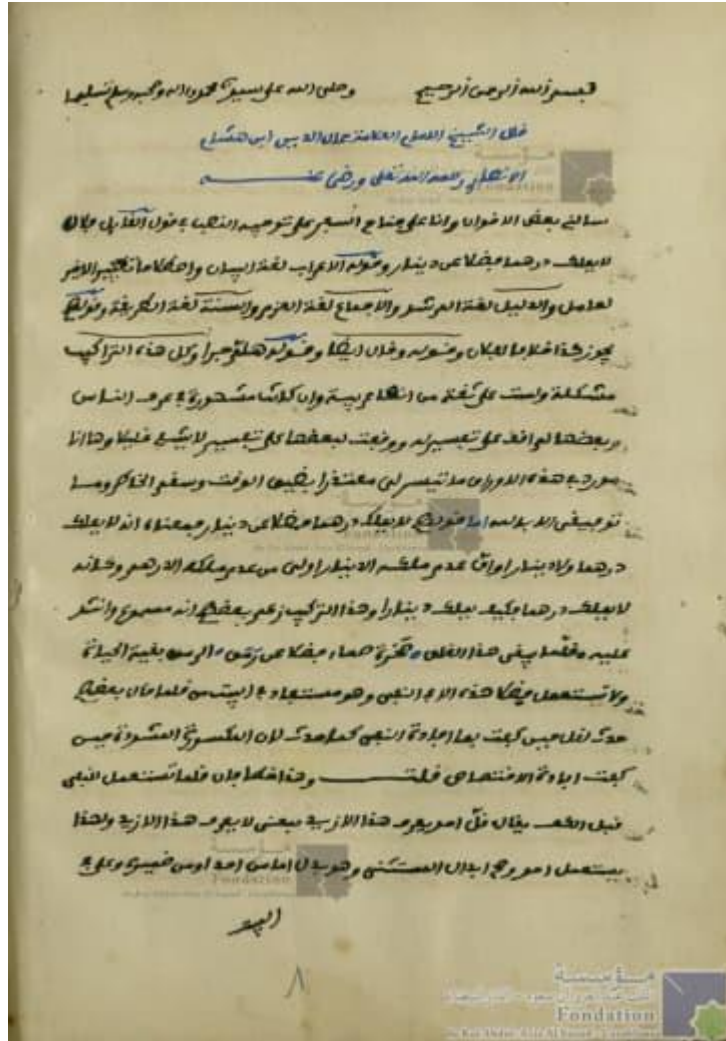 بسم الله الرحمن الرحيم وصلى الله على سيدنا محمد وآله وصحبه وسلم تسليما
قال الشيخ الامام العلامة جمال الدين ابن هشام
الانصاري رحمه الله تعلى ورضي عنه
سالني بعض الاخوان وانا على جناح السفر على توجيه النصب في قول القايل فلان
لا يملك درهما فضلا عن دينار وقوله الاعراب لغة البيان واصطلاحا تغيير الاخر
لعامل والدليل لغة المرشد والاجماع لغة العزم والسنة لغة الطريقة وقولهم
يجوز كذا خلافا لفلان وقوله وقال ايضا وقوله هلم جرا وكل هذه التراكيب
مشكلة ولست على ثقة من انها عربية وان كانت مشهورة في عرف الناس
وبعضها لم اقف على تفسير له ووقفت لبعضها على تفسير لا يشفي غليلا وها انا
مورد في هذه الاوراق ما تيسر لي معتذرا بضيق الوقت وسقم الخاطر وما
توفيقي الا بالله اما قولهم لا يملك درهما فضلا عن دينار فمعناه انه لا يملك
درهما ولا دينارا وان عدم ملكه الدينار اولى من عدم ملكه الدرهم وكانه
لا يملك درهما فكيف يملك دينارا وهذا التركيب زعم بعضهم انه مسموع وانشد
عليه فلما يبقى هذا القلق صخرة صماء فضلا عن رمق
ولا تستعمل فضلا هذه الا في النفي وهو مستفاد في البيت من فلما قال بعضهم
حدث لقل حين كفت بما افادة النفي كما حدث لان المكسورة المشددة حين
كفت افادة الاختصاص قلت وهذا خطا فان قلما تستعمل للنفي
قبل الكف يقال قل احد يعرف هذا الا زيد بمعنى لا يعرف هذا الا زيد ولهذا
يستعمل احد وصح ابدال المستثنى وهو بدل اما من احد او من ضميره وعلى
اليه
مؤسسة
Fondation